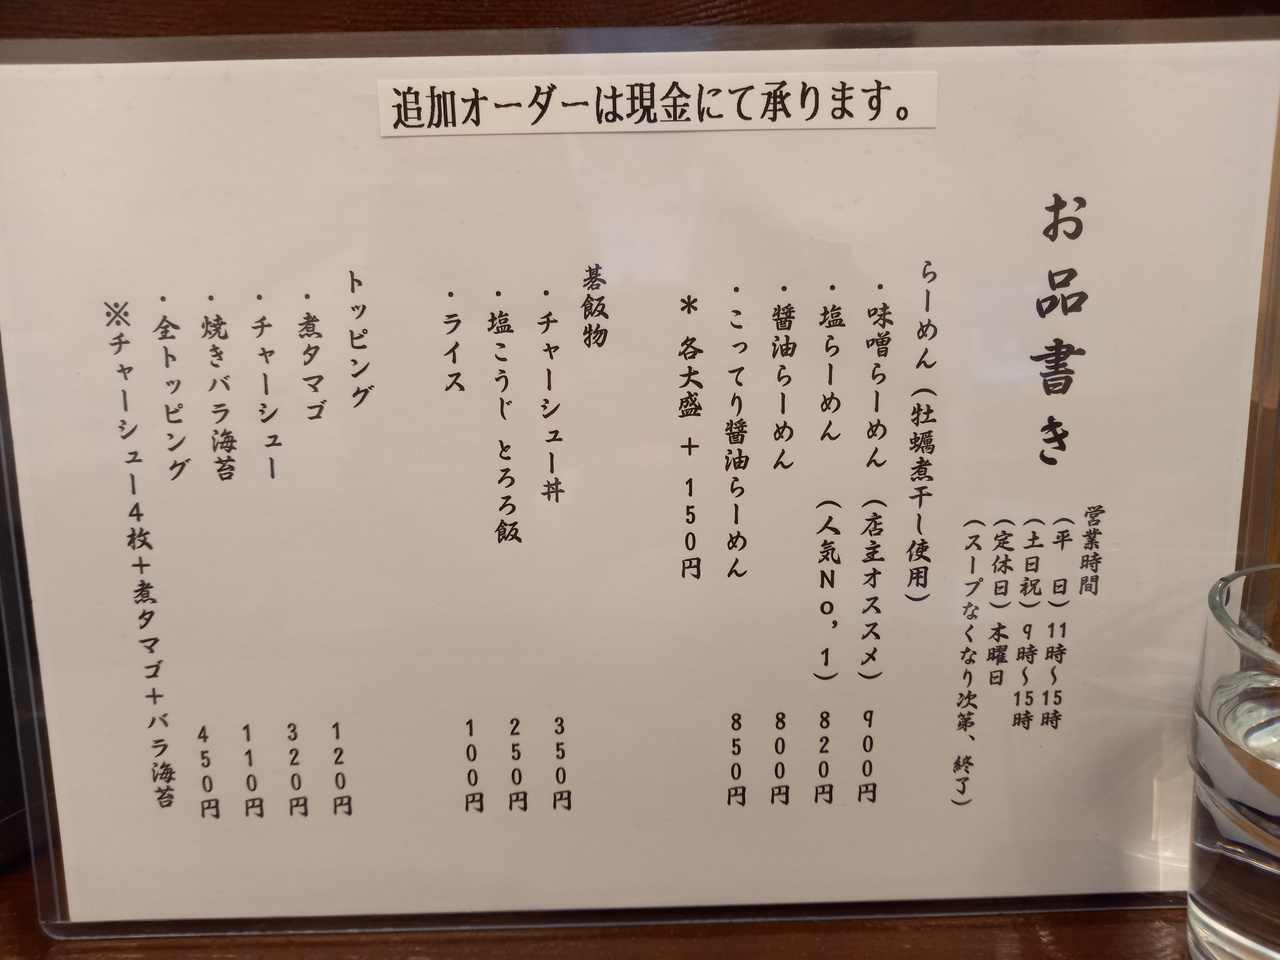 追加オーダーは現金にて承ります。
お品書き
営業時間
(平 日) 11時〜15時
(土日祝) 9時〜15時
(定休日) 木曜日
(スープなくなり次第、終了)
らーめん (牡蠣煮干し使用)
・味噌らーめん (店主オススメ) 900円
・塩らーめん (人気No,1) 820円
・醤油らーめん 800円
・こってり醤油らーめん 850円
＊各大盛 ＋150円
碁飯物
・チャーシュー丼 350円
・塩こうじ とろろ飯 250円
・ライス 100円
トッピング
・煮タマゴ 120円
・チャーシュー 320円
・焼きバラ海苔 110円
・全トッピング 450円
※チャーシュー4枚＋煮タマゴ＋バラ海苔